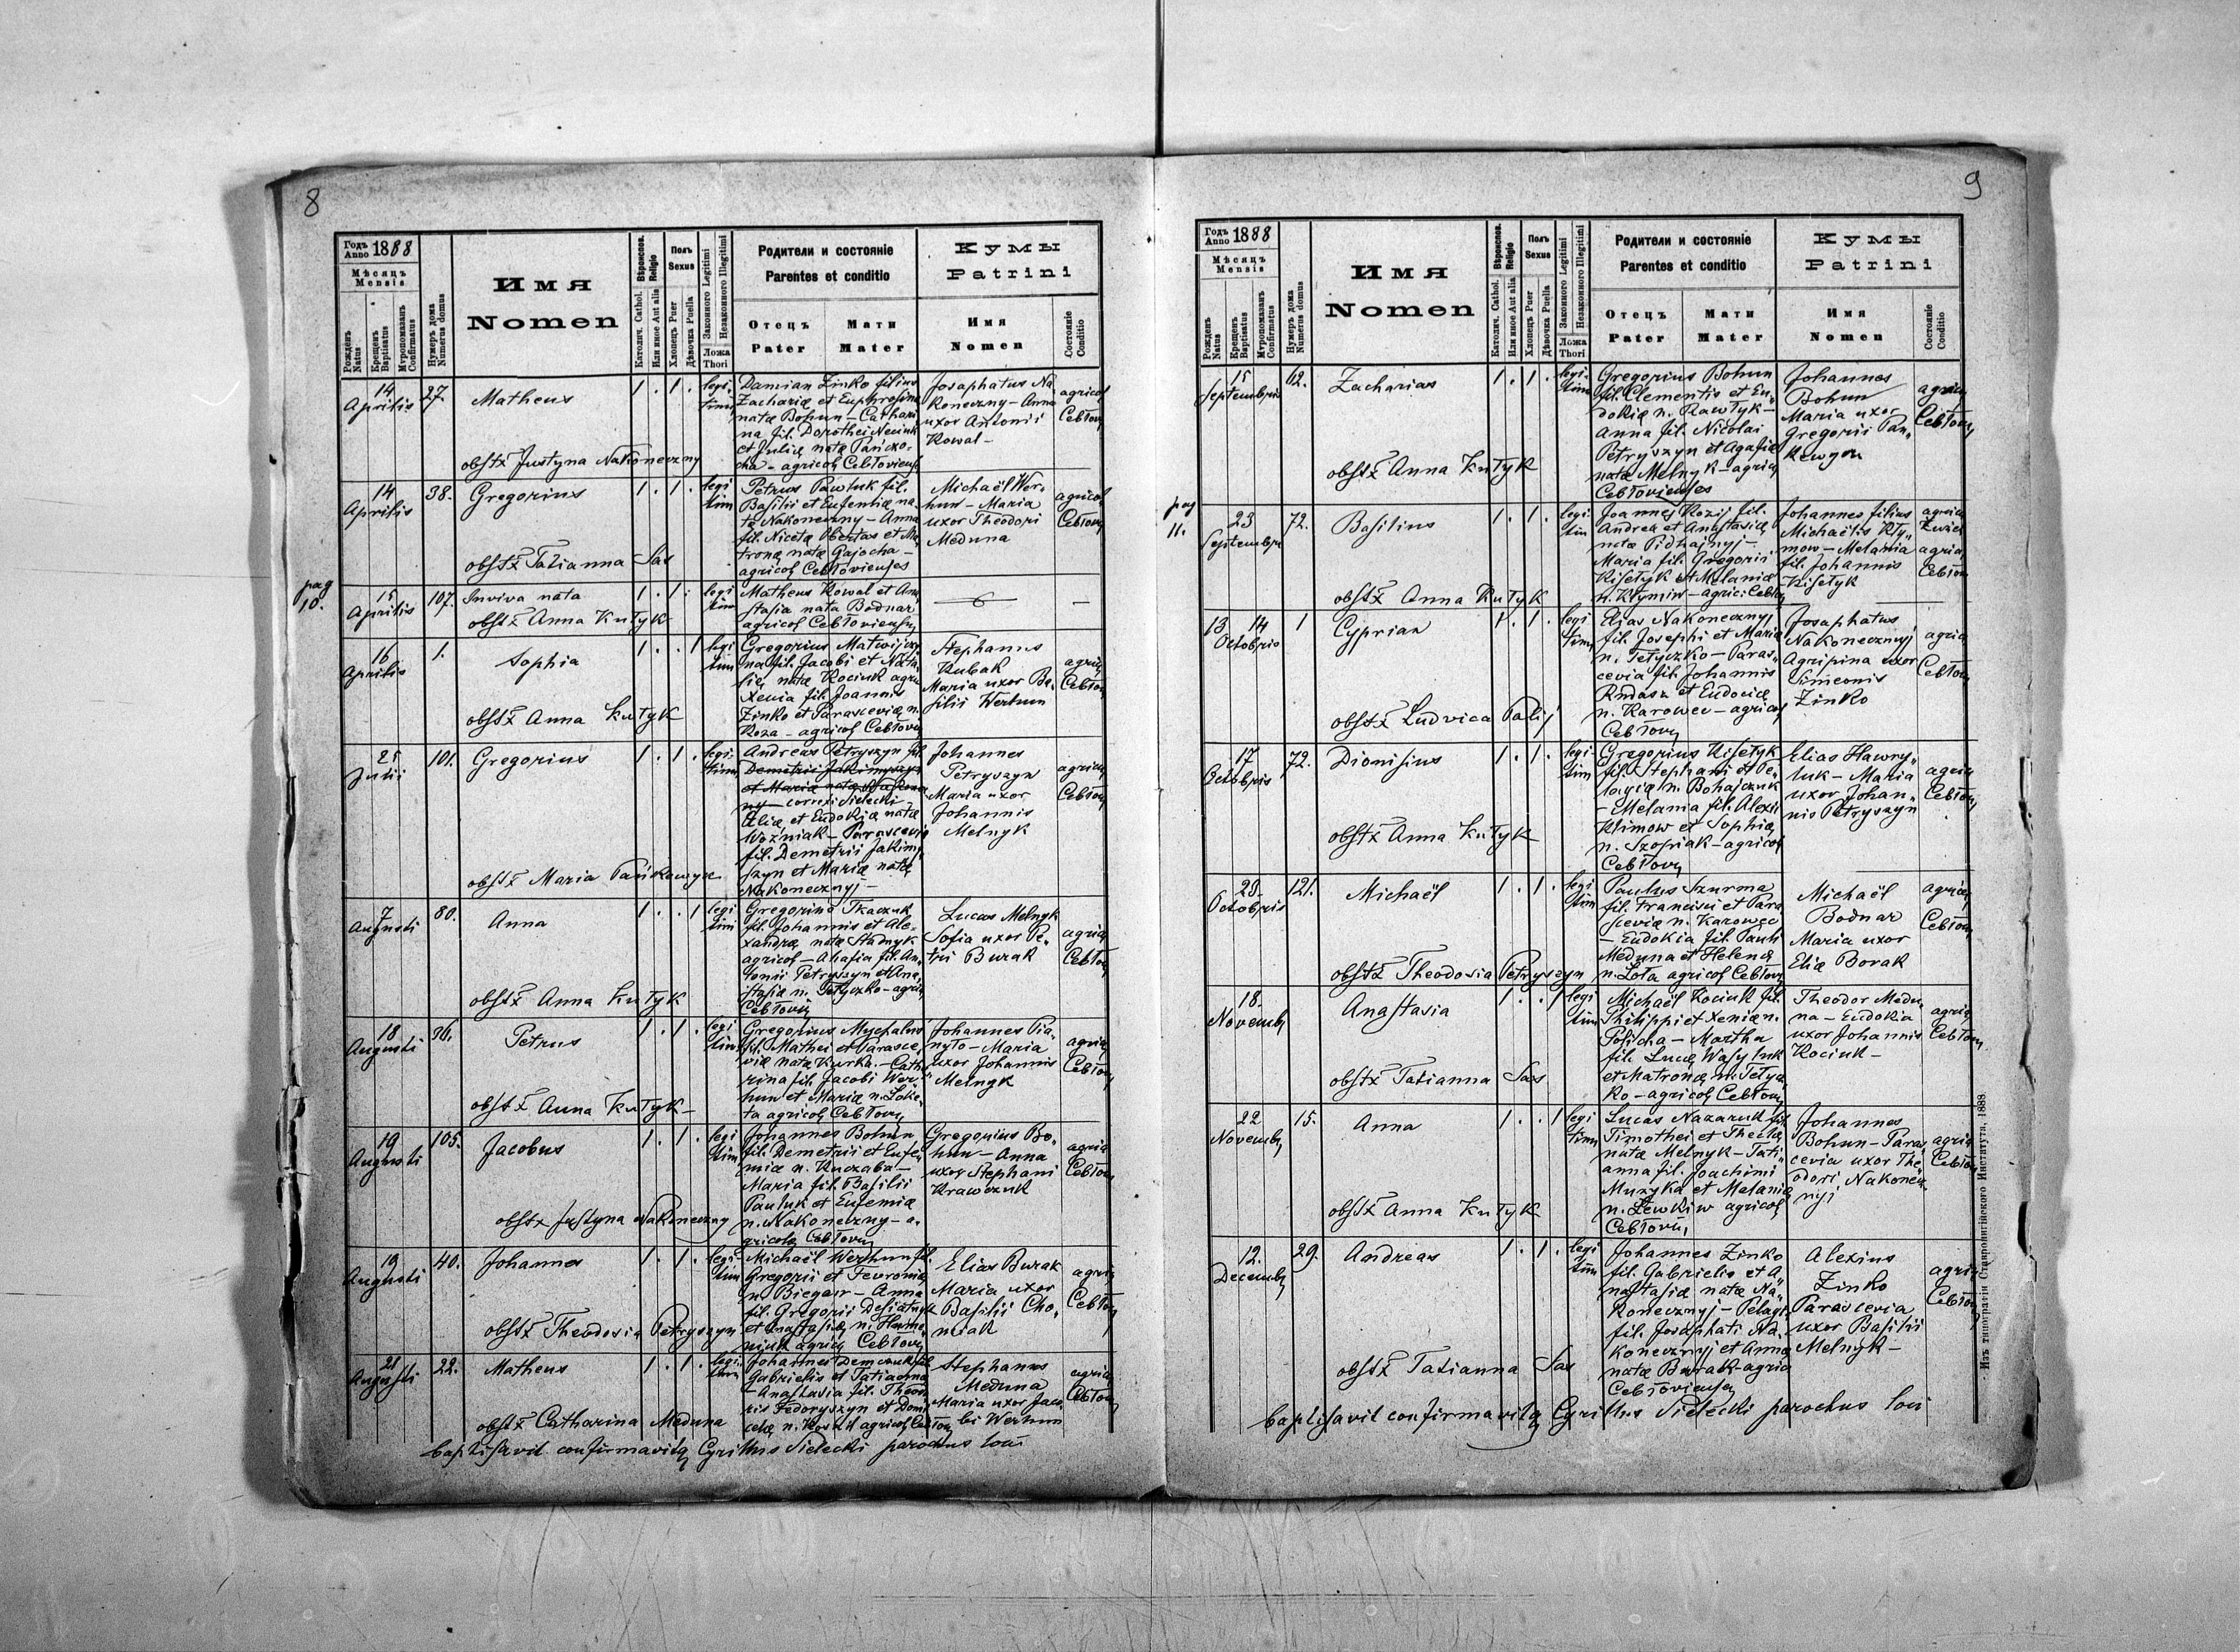 8
Годъ Anno 1888
Мѣсяць Mensis
Рожденъ Natus
Крещенъ Baptisatus
Мѵропомазанъ Confirmatus
Нумеръ дома Numerus domus
Имя
Nomen
Вѣроиспов. Religio
Католич. Cathol.
Или иное Aut alia
Полъ Sexus
Хлопецъ Puer
Дѣвочка Puella
Законного Legitimi
Незаконного Illegitimi
Ложа Thori
Родители и состояніе
Parentes et conditio
Отецъ Pater
Мати Mater
Кумы
Patrini
Имя Nomen
Состояніе Conditio
14 Aprilis 27. Matheus 1 . 1 . legitimi
Damian Zinko filius
Zachariæ et Euphrosinæ
natæ Bohun – Cathari
na fil. Dorothei Neciuk
et Juliæ natæ Pańczo-
cha – agricol Cebłoviens
Josaphatus Na
koneczny – Anna
uxor Antonii
Kowal –
agricol Cebłov
obstx Justyna Nakoneczny
14 Aprilis 38. Gregorius 1 . 1 . legi tim
Petrus Pawluk fil.
Basilii et Eufemiæ na-
tæ Nakoneczny – Anna
fil. Nicetæ Obertas et Ma
tronæ natæ Gajocha –
agricol Cebłovienses
Michaël Wer-
hun – Maria
uxor Theodori
Meduna
agricol Cebłov
obstx Tatianna Sas
pag 10.
15 Aprilis 107. Inviva nata 1 . 1 . legi tim
Matheus Kowal et Ana
stasia nata Bodnar
agricol Cebłoviens
obstx Anna Kutyk
16 Aprilis 1. Sophia 1 . . 1 legi tim
Gregorius Matwijczy
na fil. Jacobi et Nata
liæ natæ Kociuk agri
Xenia fil. Joannis
Zinko et Parasceviæ n.
Koza – agricol Cebłov
Stephanus
Kubak
Maria uxor Ba-
silii Werhun
agric Cebłov
obstx Anna Kutyk
25 Julii 101. Gregorius 1 . 1 . legi timi
Andreas Petryszyn fil.
Demetrii Jakimyszyn
et Mariæ natæ Nakone
ny correxi Sielecki –
Eliæ et Eudokiæ natæ
Woźniak – Parascevia
fil. Demetrii Jakimy
szyn et Mariæ natæ
Nakonecznyj –
Johannes
Petryszyn
Maria uxor
Johannis
Melnyk
agric Cebłov
obstx Maria Pańkewycz
7 Augusti 80. Anna 1 . . 1 legi tim
Gregorius Tkaczuk
fil. Johannis et Ale-
xandræ natæ Stadnyk
agricol – Ahafia fil. An
tonii Petryszyn et Ana
stasiæ n. Tetyczko – agric
Cebłov
Lucas Melnyk
Sofia uxor Pe-
tri Burak
agric Cebłov
obstx Anna Kutyk
18 Augusti 36. Petrus 1 . 1 . legi tim
Gregorius Mychaluś
fil. Mathei et Parasce
viæ natæ Kurka. – Catha
rina fil. Jacobi Wer-
hun et Mariæ n. Loke-
ta agricol Cebłov
Johannes Pia-
nyto – Maria
uxor Johannis
Melnyk
agric Cebłov
obstx Anna Kutyk –
19 Augusti 105. Jacobus 1 . 1 . legi tim
Johannes Bohun
fil. Demetrii et Eufe-
miæ n. Kuczaba –
Maria fil. Basilii
Pauluk et Eufemiæ
n. Nakoneczny – a-
gricol Cebłov
Gregorius Bo-
hun – Anna
uxor Stephani
Krawczuk
agric Cebłov
obstx Justyna Nakoneczny
19 Augusti 40. Johannes 1 . 1 . legi tim
Michaël Werhun fil.
Gregorii et Fevroniæ
n. Biegan – Anna
fil. Gregorii Desiatnyk
et Anastasiæ n. Harme
niuk agric Cebłov
Elias Burak
Maria uxor
Basilii Cho-
miak
agric Cebłov
obstx Theodosia Petryszyn
21 Augusti 22. Matheus 1 . 1 . legi tim
Johannes Demczuk fil
Gabrielis et Tatianna
– Anastasia fil. Theodo
ris Fedoryszyn et Domi
celæ n. agricol Cebłov
Stephanus
Meduna
Maria uxor Jaco
bi Werhun
agric Cebłov
obstx Catharina Meduna
baptisavit confirmavitq Cyrillus Sielecki parochus loci
9
Годъ Anno 1888
Мѣсяць Mensis
Рожденъ Natus
Крещенъ Baptisatus
Мѵропомазанъ Confirmatus
Нумеръ дома Numerus domus
Имя
Nomen
Вѣроиспов. Religio
Католич. Cathol.
Или иное Aut alia
Полъ Sexus
Хлопецъ Puer
Дѣвочка Puella
Законного Legitimi
Незаконного Illegitimi
Ложа Thori
Родители и состояніе
Parentes et conditio
Отецъ Pater
Мати Mater
Кумы
Patrini
Имя Nomen
Состояніе Conditio
15 Septembris 62. Zacharias 1 . 1 . legi- tim
Gregorius Bohun
fil. Clementis et Eu-
dokiæ n. Pawłyk –
Anna fil. Nicolai
Petryszyn et Agafiæ
natæ Melnyk – agric
Cebłovienses
Johannes
Bohun
Maria uxor
Gregorii Pań-
kewycz
agric Cebłov
obstx Anna Kutyk
pag 11.
23 Septembr 72. Basilius 1 . 1 . legi tim
Joannes Kozij fil.
Andreæ et Anastasiæ
natæ Pidhajnyj –
Maria fil. Gregorii
Kisełyk et Melaniæ
n. Kłymiw – agric Cebłov
Johannes filius
Michaëlis Kły-
mow – Melania
fil. Johannis
Kisełyk
agric
agric Cebłov
obstx Anna Kutyk
13 14 Octobris 1 Cyprian 1 . 1 . legi tim
Elias Nakonecznyj
fil. Josephi et Mariæ
n. Tetyczko – Paras-
cevia fil. Johannis
Rudasz et Eudociæ
n. Karowec – agricol
Cebłov
Josaphatus
Nakonecznyj
Agripina uxor
Simeonis
Zinko
agric Cebłov
obstx Ludvica Palij
17 Octobris 72. Dionisius 1 . 1 . legi tim
Gregorius Kisełyk
fil. Stephani et Pe-
lagiæ n. Bohajczuk
– Melania fil. Alexii
Klimow et Sophiæ
n. Szopiak – agricol
Cebłov
Elias Hawry-
luk – Maria
uxor Johan-
nis Petryszyn
agric Cebłov
obstx Anna Kutyk
121. Octobris Michaël 1 . 1 . legi tim
Paulus Szurma
fil. Francisci et Para
sceviæ n. Karowec
– Eudokia fil. Pauli
Meduna et Helenæ
n. Łota agricol Cebłov
Michaël
Bodnar
Maria uxor
Eliæ Borak
agric Cebłov
obstx Theodosia Petryszyn
18. Novemb Anastasia 1 . . 1 legi tim
Michaël Kociuk fil.
Philippi et Xeniæ n.
Posicha – Martha
fil. Lucæ Wasyluk
et Matronæ n. Tetycz
ko – agricol Cebłov
Theodor Medu
na – Eudokia
uxor Johannis
Kociuk –
agric Cebłov
obstx Tatianna Sas
22 Novemb 15. Anna 1 . . 1 legi tim
Lucas Nazaruk fil.
Timothei et Theclæ
natæ Melnyk – Tati-
anna fil. Joachimi
Muzyka et Melaniæ
n. Lewkiw agricol
Cebłov
Johannes
Bohun – Paras
cevia uxor The
odori Nakonecz-
nyj
agric Cebłov
obstx Anna Kutyk
12. Decemb 29. Andreas 1 . 1 . legi tim
Johannes Zinko
fil. Gabrielis et A-
nastasiæ natæ Na-
konecznyj – Pelagia
fil. Josaphati Na-
konecznyj et Annæ
natæ Burak – agric
Cebłoviens
Alexius
Zinko
Parascevia
uxor Basilii
Melnyk –
agric Cebłov
obstx Tatianna Sas
baptisavit confirmavitq Cyrillus Sielecki parochus loci
Изъ типографіи Ставропигійского Института, 1888.